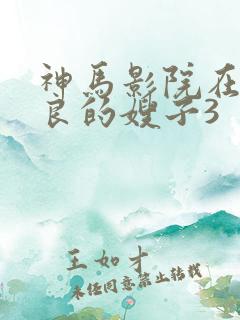 神马影院在
良的嫂子3
王如才
未经同意禁止转载